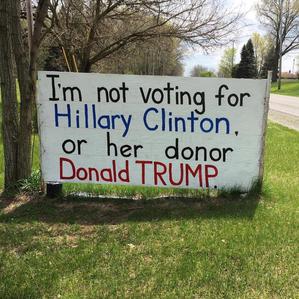 I'm not voting for
Hillary Clinton,
or her donor
Donald TRUMP.